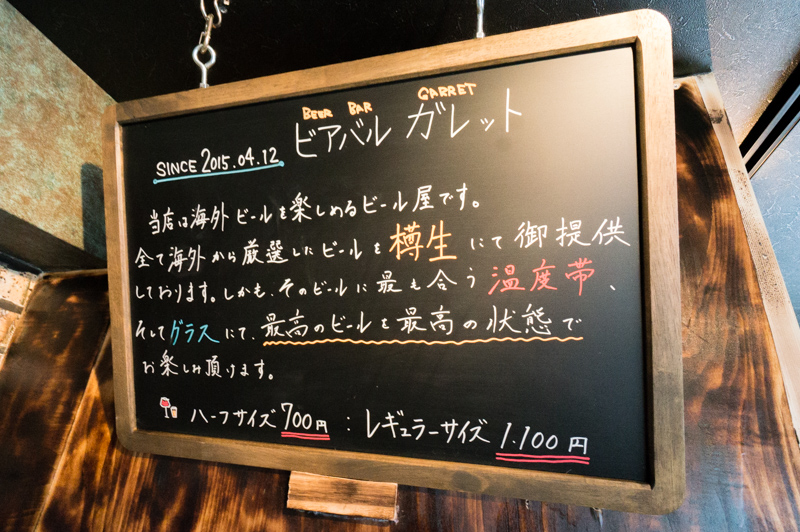 BEER BAR GARRET
SINCE 2015.04.12 ビアバル ガレット
当店は海外ビールを楽しめるビール屋です。
全て海外から厳選したビールを樽生にて御提供
しております。しかも、そのビールに最も合う温度帯、
そしてグラスにて、最高のビールを最高の状態で
お楽しみ頂けます。
ハーフサイズ700円 : レギュラーサイズ 1.100円